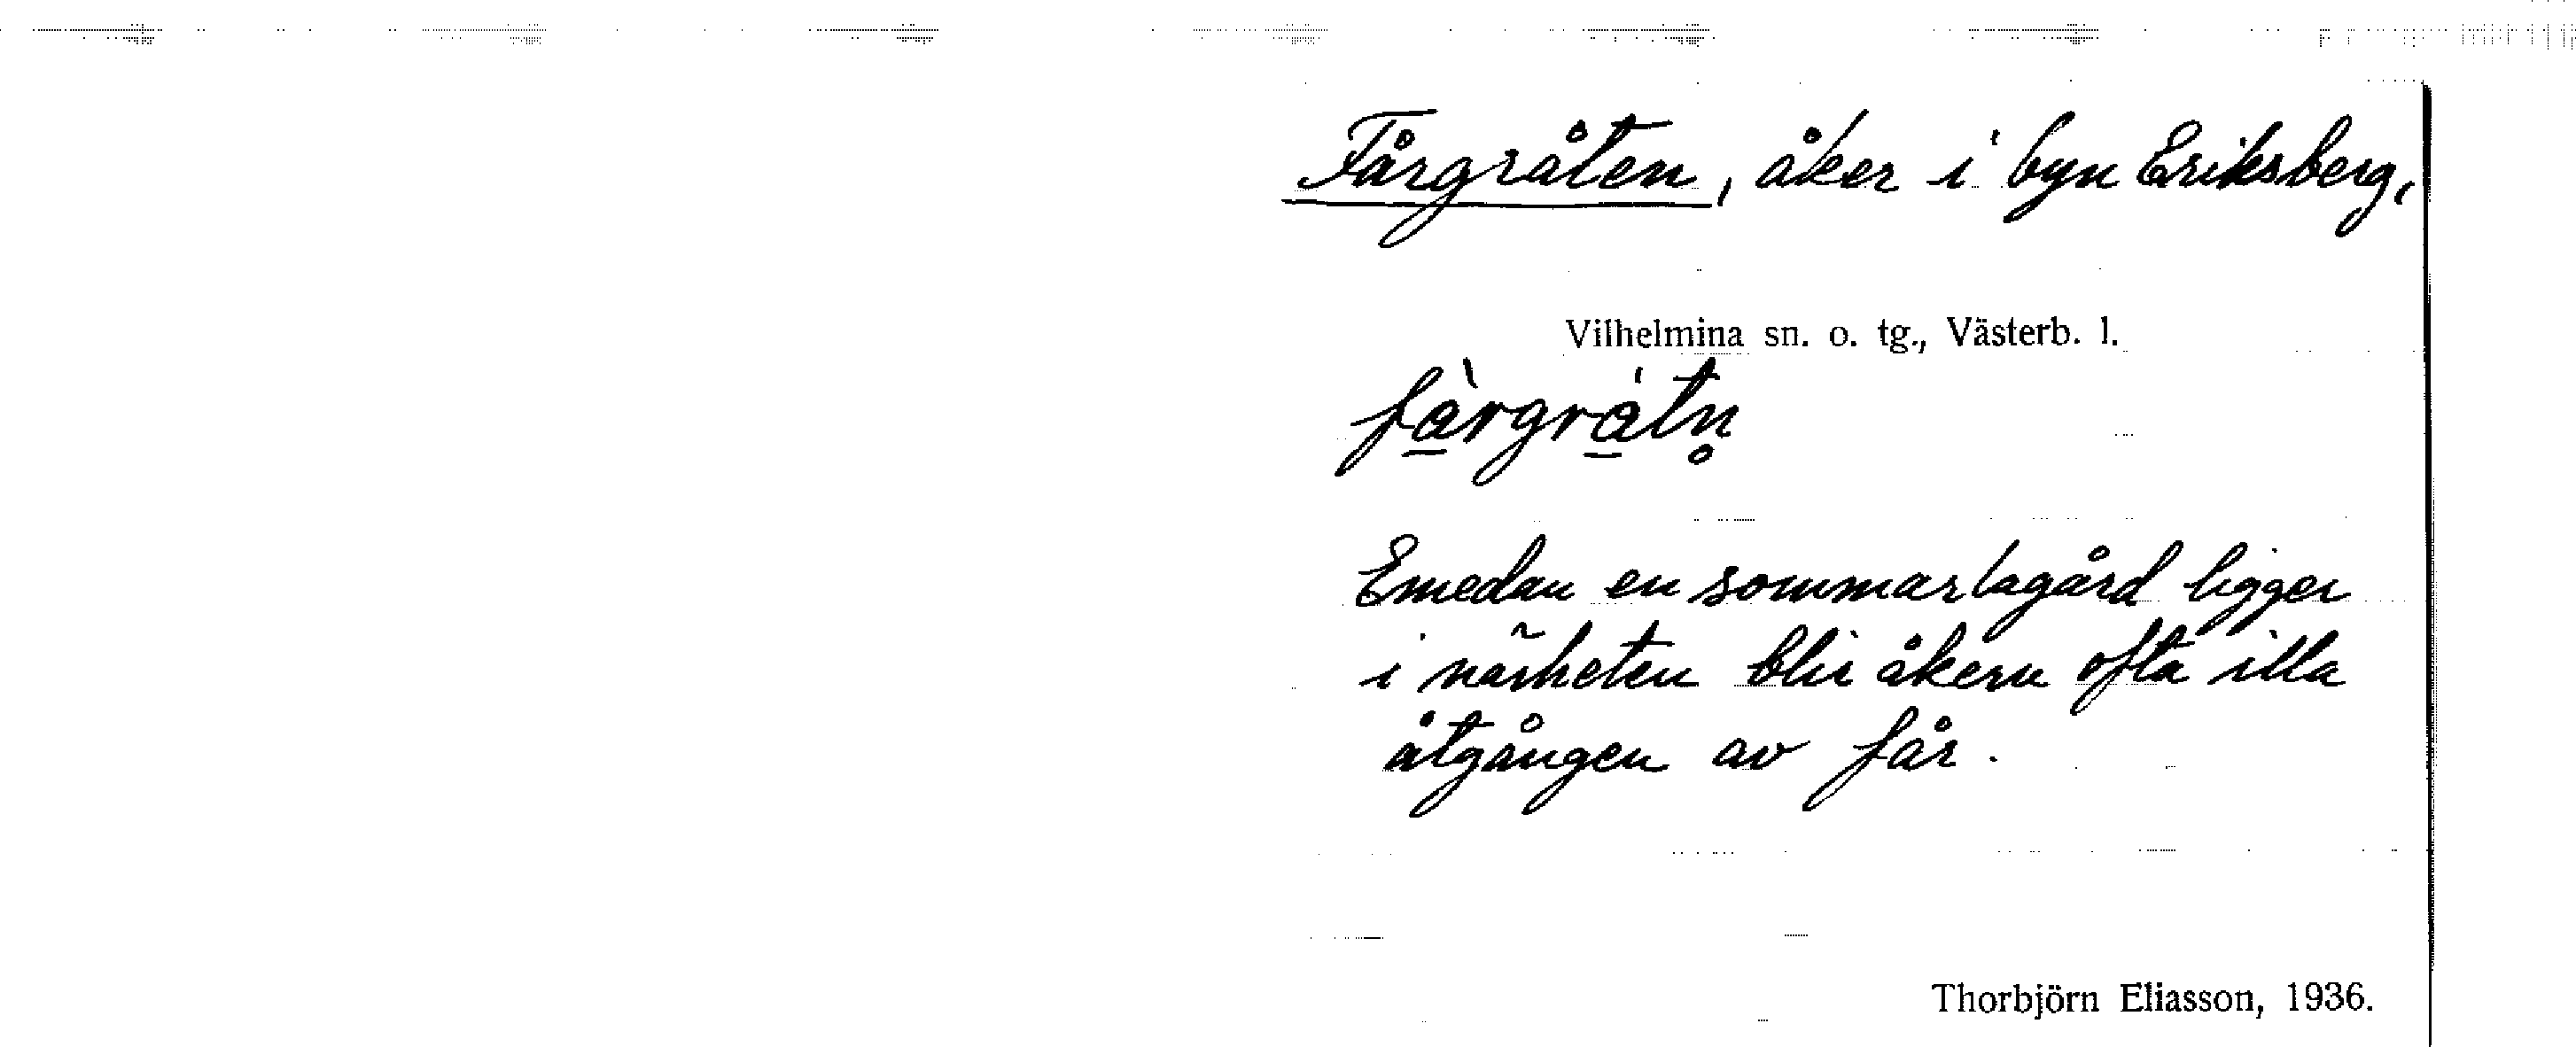 Fårgråten, åker i byn Eriksberg,
Vilhelmina sn. o. tg., Västerb. l.
få̱̀rgrǻ̱tn̥
Emedan en sommarlagård ligger
i närheten blir åkern ofta illa
åtgången av får.
Thorbjörn Eliasson, 1936.